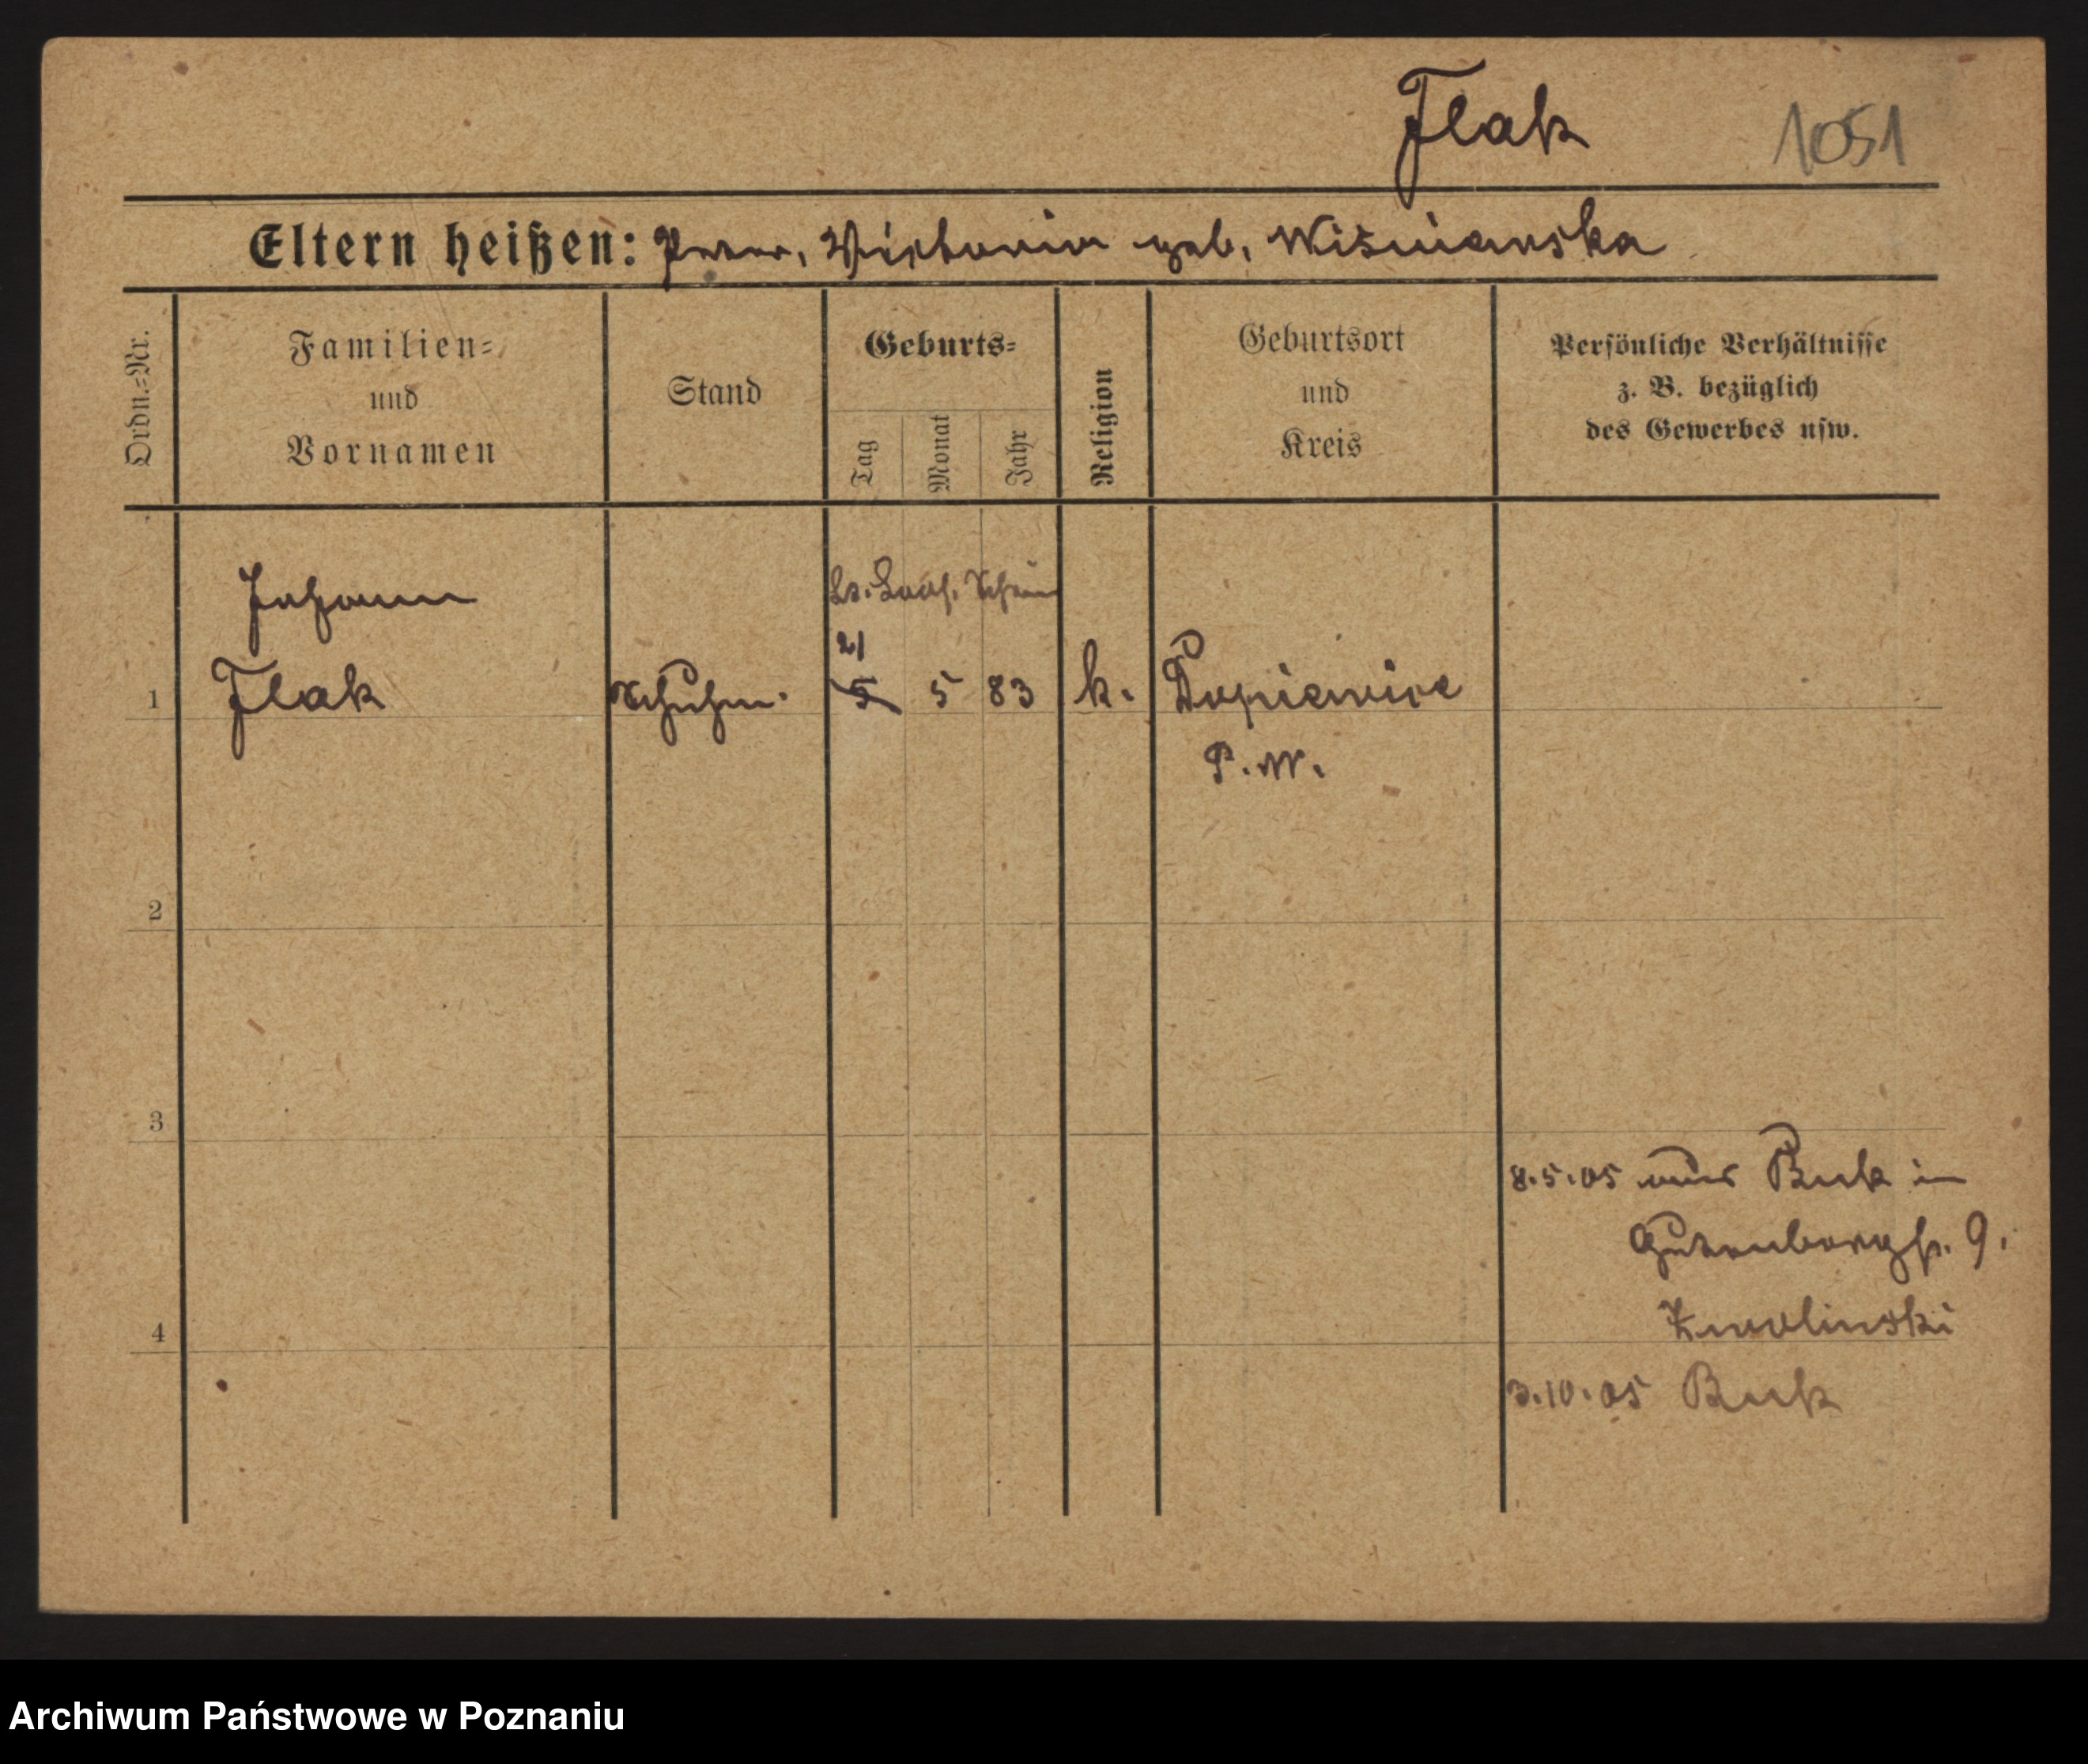 Flak 1051
Eltern heißen: Peter, Victoria geb. Wiśniewska
Ordn.=Nr.
Familien=
und
Vornamen
Stand
Geburts=
Tag
Monat
Jahr
Religion
Geburtsort
und
Kreis
Persönliche Verhältnisse
z. B. bezüglich
des Gewerbes usw.
Johann
21
1 Flak Schuhm. 5 5 83 k. Dopiewice
P. W.
2
3
8.5.05 aus Buk in
Gutenbergstr. 9.
4
3.10.05 Buk
Archiwum Państwowe w Poznaniu